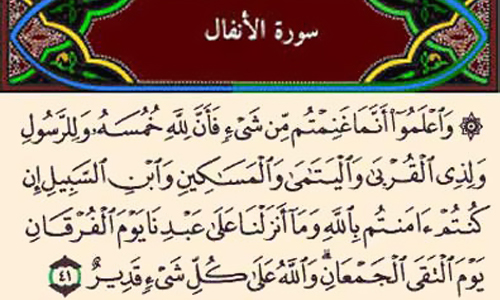 سورة الأنفال
۞ وَٱعْلَمُوٓا۟ أَنَّمَا غَنِمْتُم مِّن شَىْءٍ فَأَنَّ لِلَّهِ خُمُسَهُۥ وَلِلرَّسُولِ
وَلِذِى ٱلْقُرْبَىٰ وَٱلْيَتَٰمَىٰ وَٱلْمَسَٰكِينِ وَٱبْنِ ٱلسَّبِيلِ إِن
كُنتُمْ ءَامَنتُم بِٱللَّهِ وَمَآ أَنزَلْنَا عَلَىٰ عَبْدِنَا يَوْمَ ٱلْفُرْقَانِ
يَوْمَ ٱلْتَقَى ٱلْجَمْعَانِ ۗ وَٱللَّهُ عَلَىٰ كُلِّ شَىْءٍ قَدِيرٌ ٤١